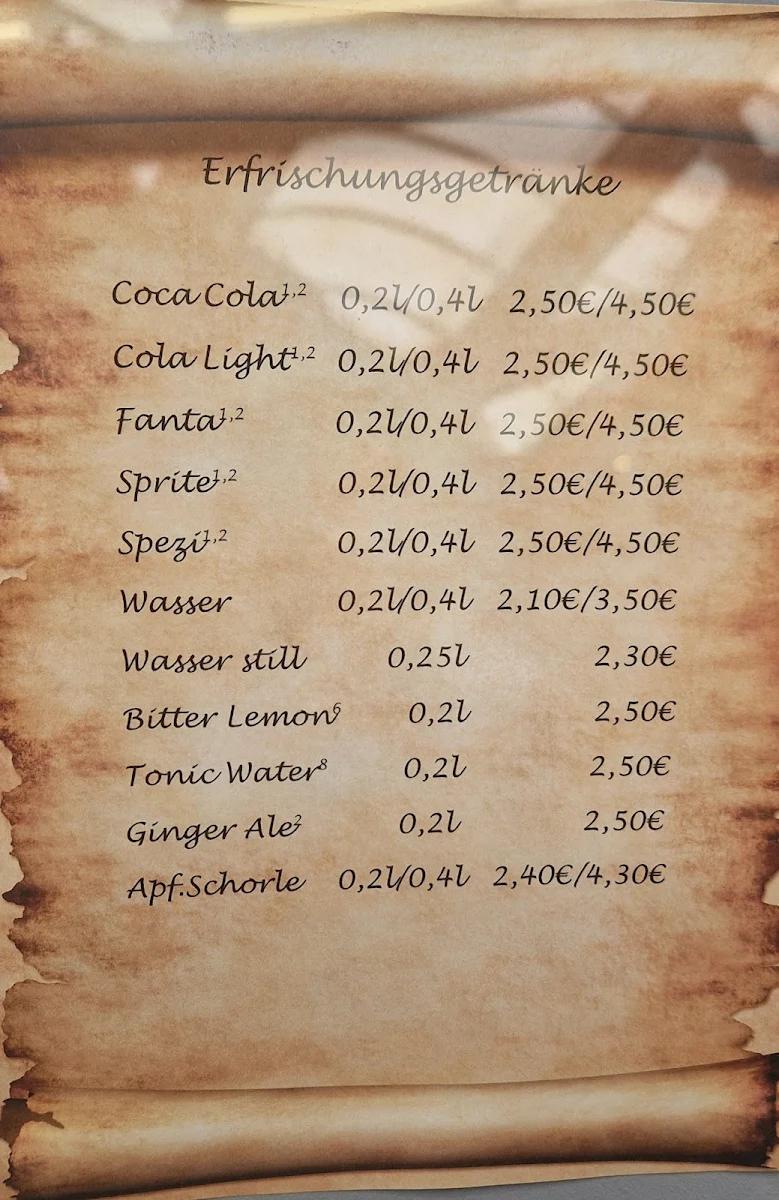 Erfrischungsgetränke
Coca Cola¹,² 0,2l/0,4l 2,50€/4,50€
Cola Light¹,² 0,2l/0,4l 2,50€/4,50€
Fanta¹,² 0,2l/0,4l 2,50€/4,50€
Sprite¹,² 0,2l/0,4l 2,50€/4,50€
Spezi¹,² 0,2l/0,4l 2,50€/4,50€
Wasser 0,2l/0,4l 2,10€/3,50€
Wasser still 0,25l 2,30€
Bitter Lemon⁶ 0,2l 2,50€
Tonic Water⁸ 0,2l 2,50€
Ginger Ale² 0,2l 2,50€
Apf.Schorle 0,2l/0,4l 2,40€/4,30€